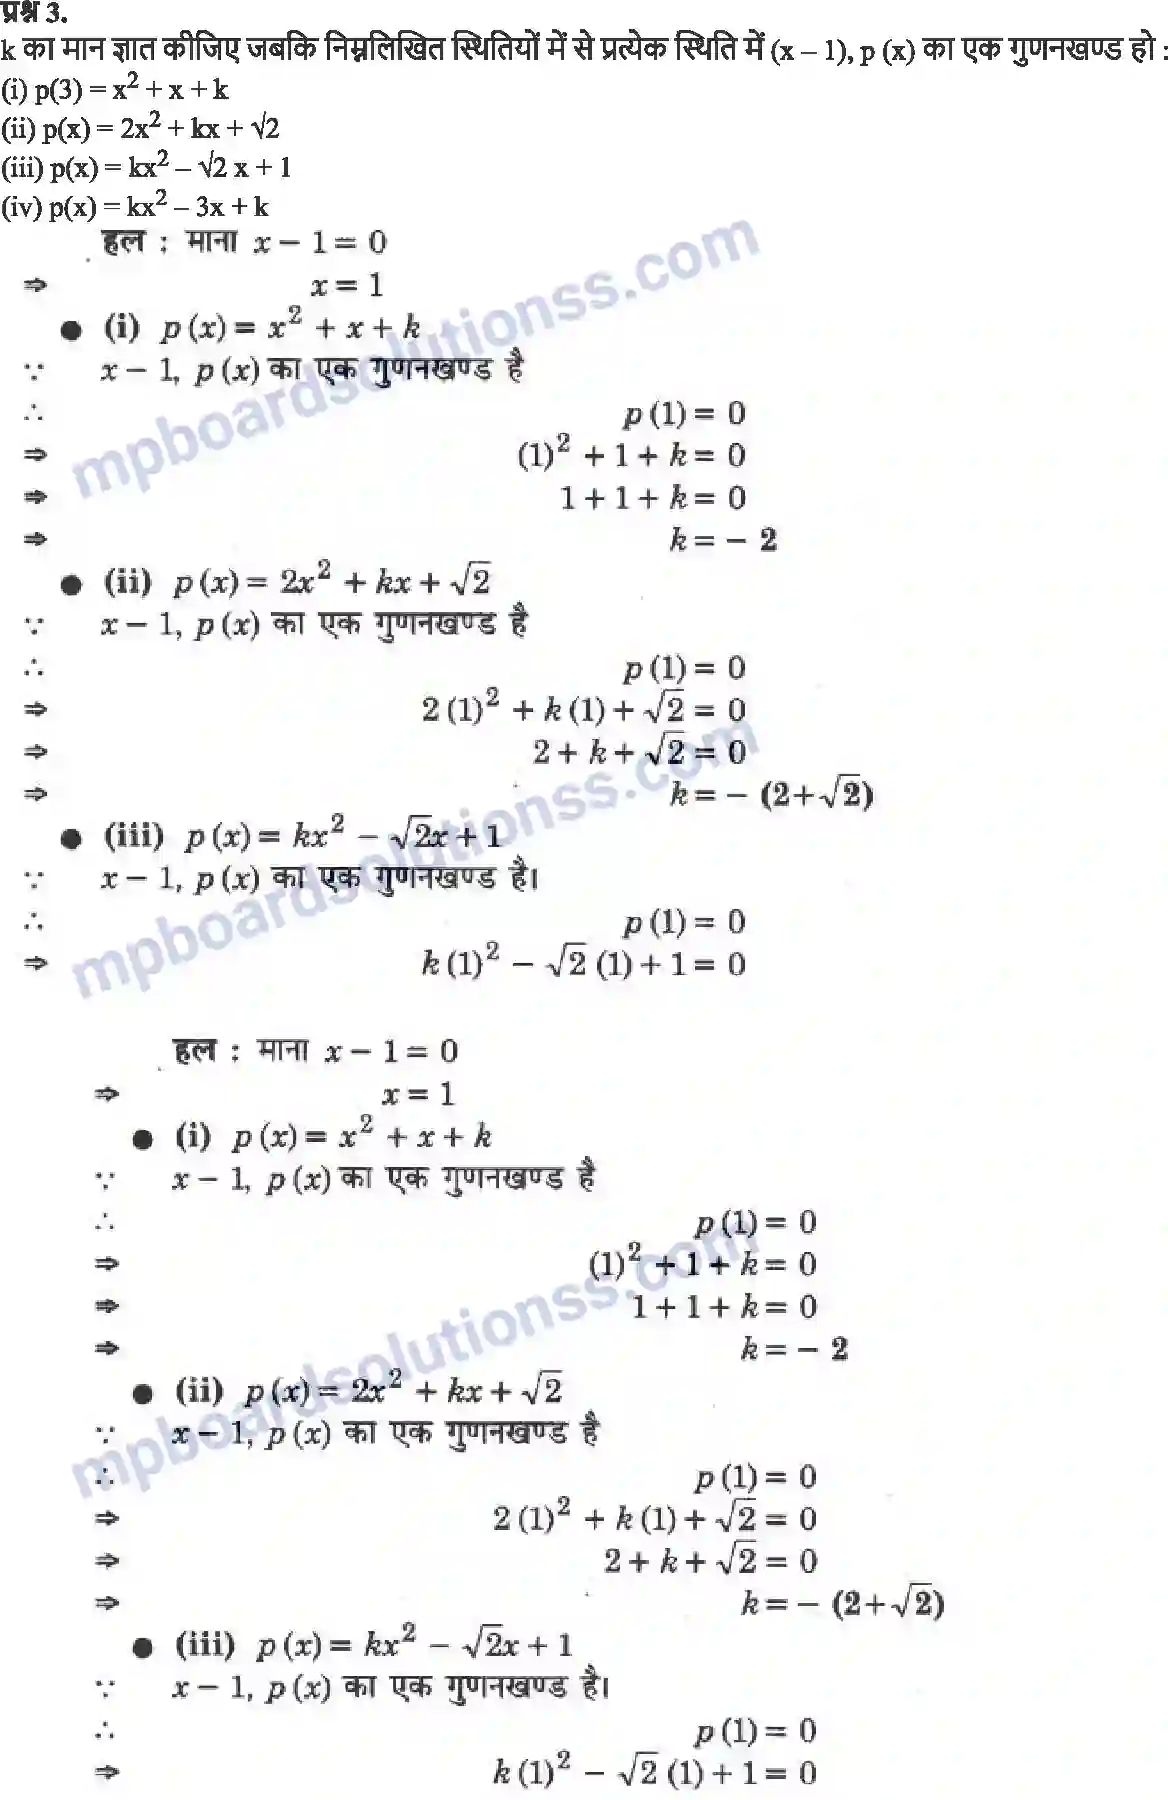 प्रश्न 3.
k का मान ज्ञात कीजिए जबकि निम्नलिखित स्थितियों में से प्रत्येक स्थिति में (x – 1), p (x) का एक गुणनखण्ड हो :
(i) p(3) = x² + x + k
(ii) p(x) = 2x² + kx + √2
(iii) p(x) = kx² – √2 x + 1
(iv) p(x) = kx² – 3x + k
हल : माना x – 1 = 0
⇒ x = 1
● (i) p (x) = x² + x + k
∵ x – 1, p (x) का एक गुणनखण्ड है
∴ p (1) = 0
⇒ (1)² + 1 + k = 0
⇒ 1 + 1 + k = 0
⇒ k = – 2
● (ii) p (x) = 2x² + kx + √2
∵ x – 1, p (x) का एक गुणनखण्ड है
∴ p (1) = 0
⇒ 2 (1)² + k (1) + √2 = 0
⇒ 2 + k + √2 = 0
⇒ k = – (2 + √2)
● (iii) p (x) = kx² – √2x + 1
∵ x – 1, p (x) का एक गुणनखण्ड है।
∴ p (1) = 0
⇒ k (1)² – √2 (1) + 1 = 0
हल : माना x – 1 = 0
⇒ x = 1
● (i) p (x) = x² + x + k
∵ x – 1, p (x) का एक गुणनखण्ड है
∴ p (1) = 0
⇒ (1)² + 1 + k = 0
⇒ 1 + 1 + k = 0
⇒ k = – 2
● (ii) p (x) = 2x² + kx + √2
∵ x – 1, p (x) का एक गुणनखण्ड है
∴ p (1) = 0
⇒ 2 (1)² + k (1) + √2 = 0
⇒ 2 + k + √2 = 0
⇒ k = – (2 + √2)
● (iii) p (x) = kx² – √2x + 1
∵ x – 1, p (x) का एक गुणनखण्ड है।
∴ p (1) = 0
⇒ k (1)² – √2 (1) + 1 = 0
mpboardsolutionss.com
mpboardsolutionss.com
mpboardsolutionss.com